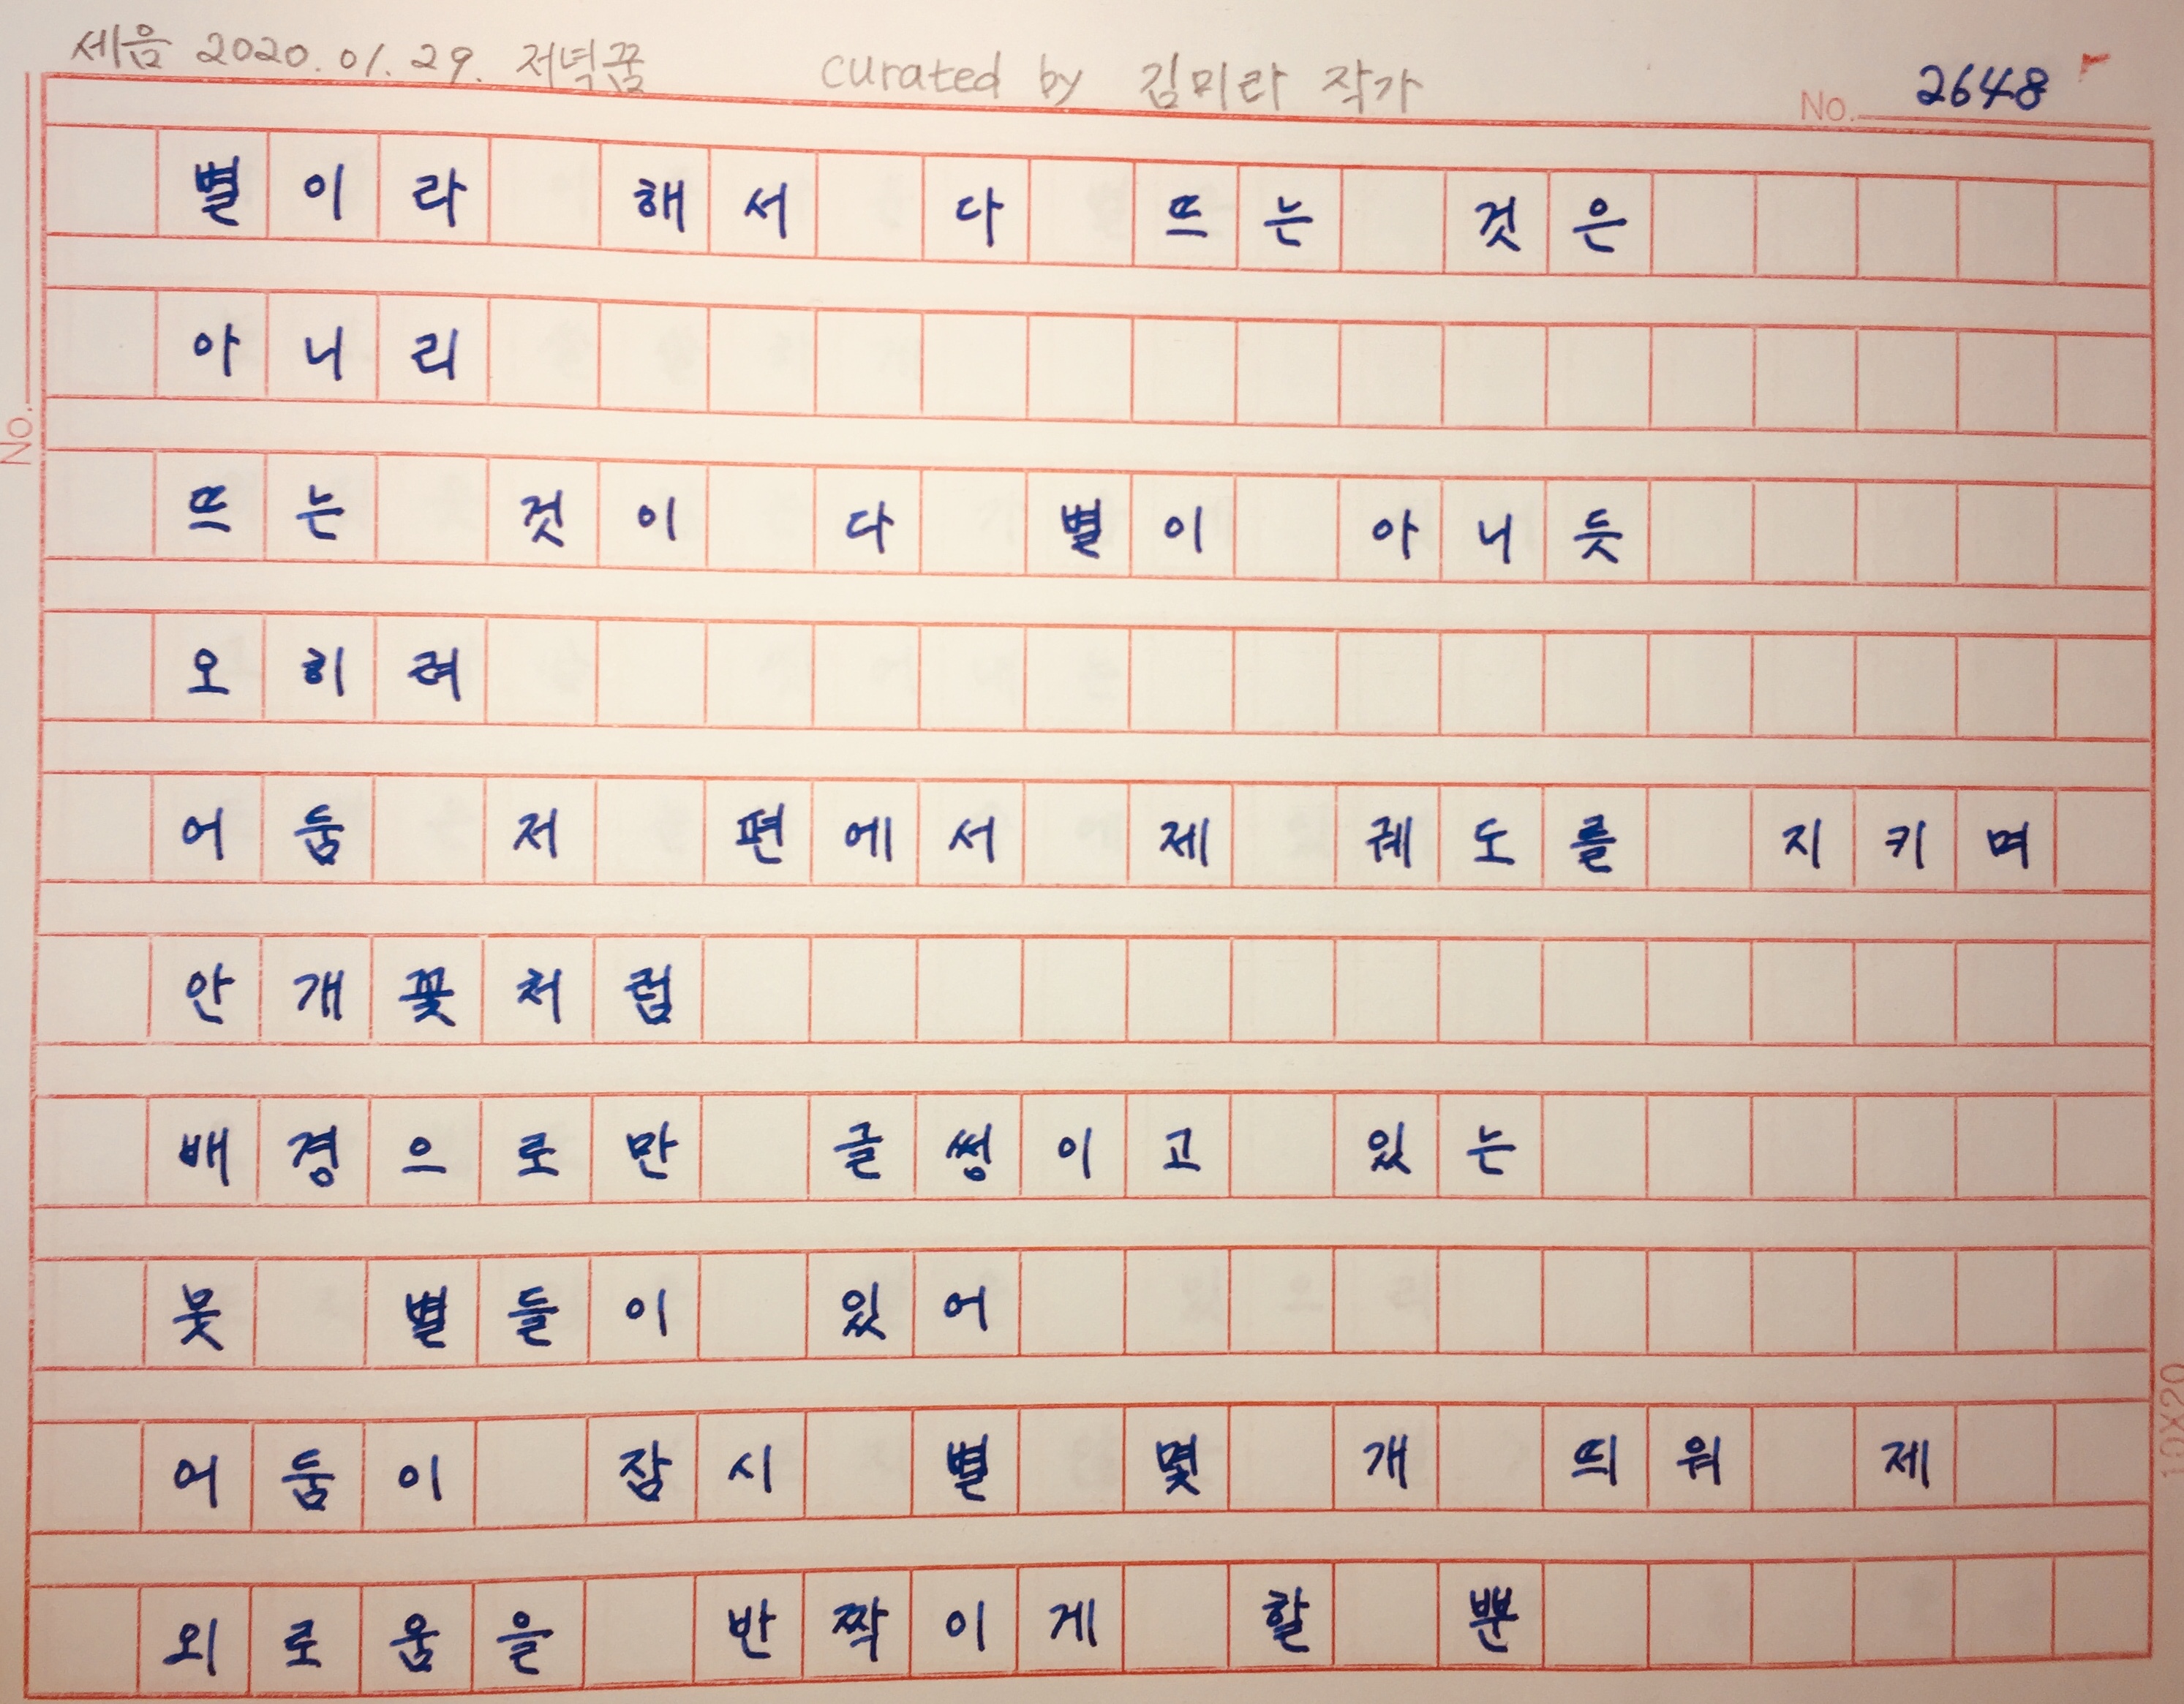 세음 2020. 01. 29. 저녁꿈 curated by 김미라 작가 No. 2648
별이라 해서 다 뜨는 것은
아니리
뜨는 것이 다 별이 아니듯
오히려
어둠 저 편에서 제 궤도를 지키며
안개꽃처럼
배경으로만 글썽이고 있는
뭇 별들이 있어
어둠이 잠시 별 몇 개 띄워 제
외로움을 반짝이게 할 뿐
No.
10X20